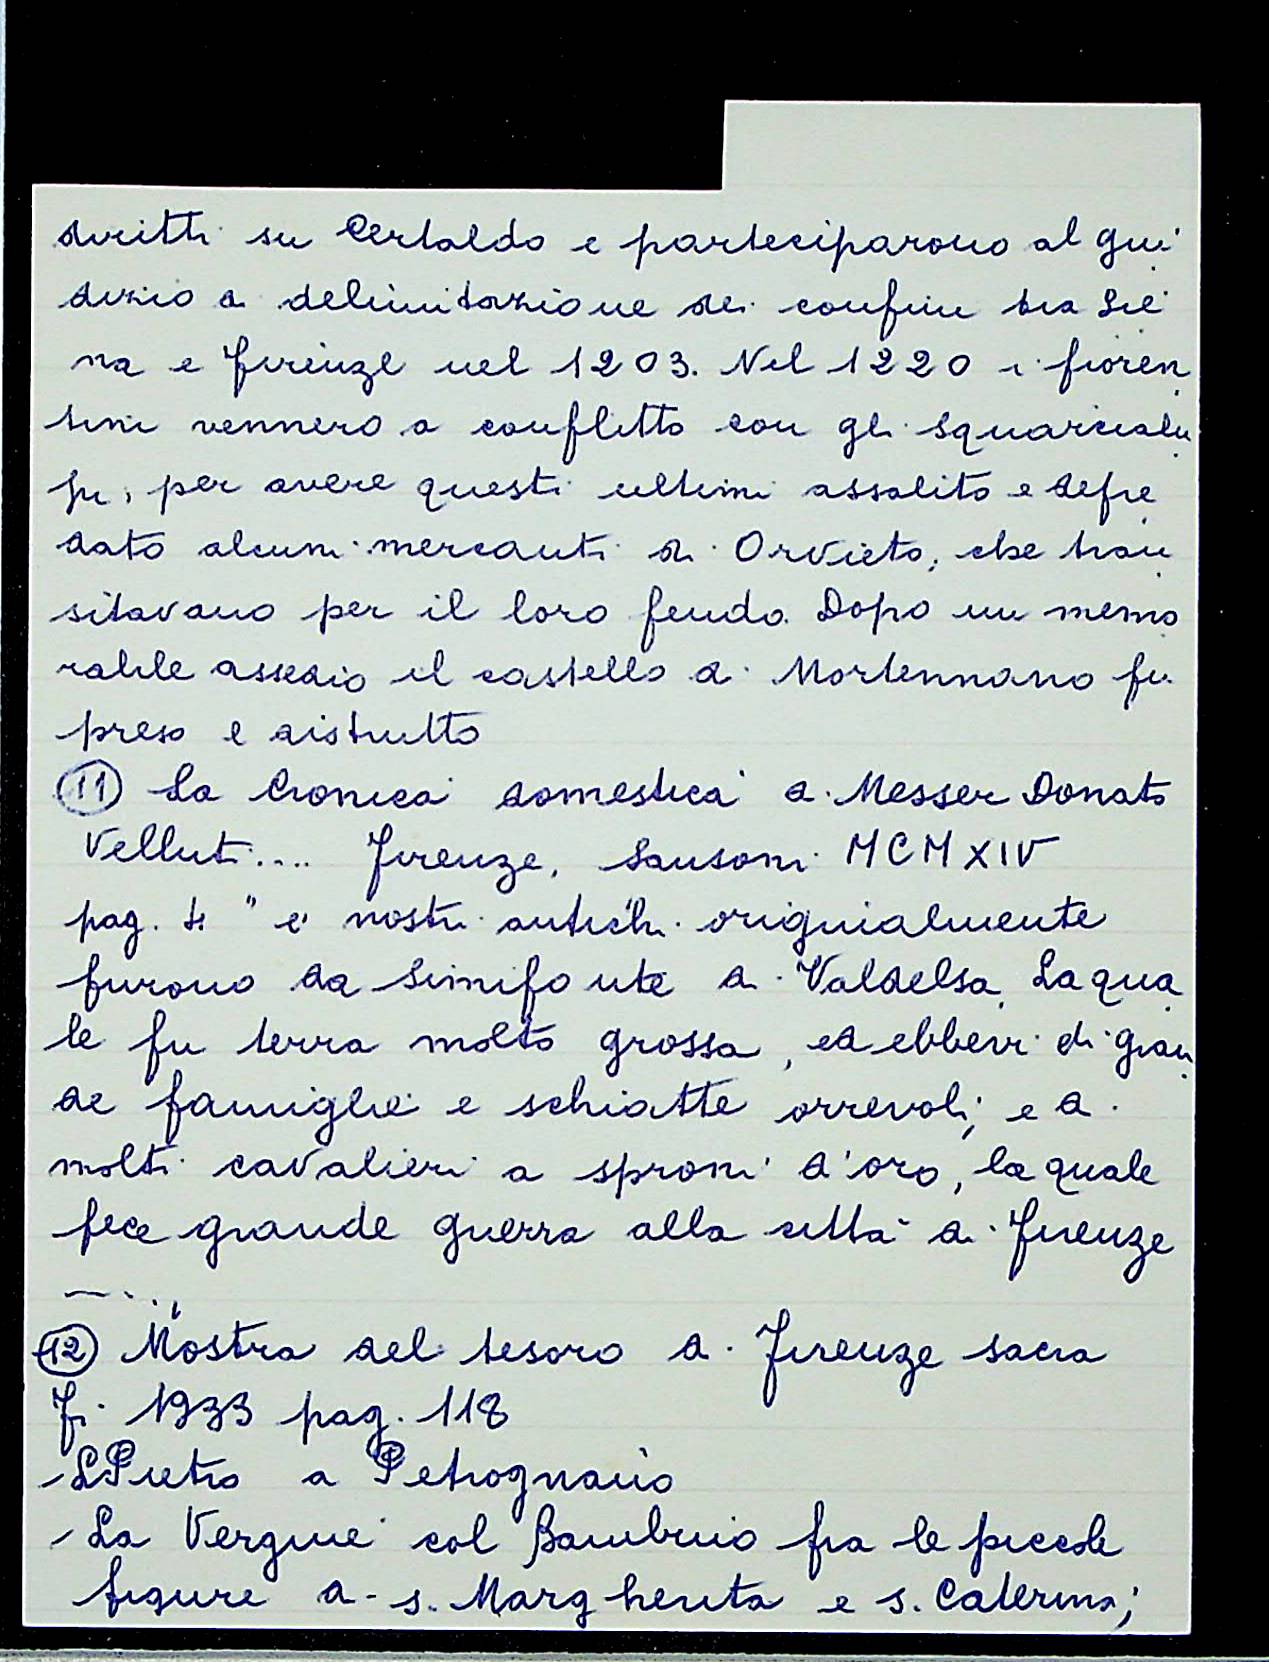 diritti su Certaldo e parteciparono al giu
dizio di delimitazione dei confini tra Sie
na e Firenze nel 1203. Nel 1220 i fioren
tini vennero a conflitto con gli Squarcialu
pi, per avere questi ultimi assalito e depre
dato alcuni mercanti di Orvieto, che tran
sitavano per il loro feudo. Dopo un memo
rabile assedio il castello di Mortennano fu
preso e distrutto
(11) La Cronica domestica di Messer Donato
Velluti.... Firenze, Sansoni MCMXIV
pag. 4 " e' nostri antichi originialmente
furono da Simifonte di Valdelsa. La qua
le fu terra molto grossa, ed ebbevi di gran
de famiglie e schiatte orrevoli; e di
molti cavalieri a sproni d'oro, la quale
fece grande guerra alla città di Firenze
....."
(12) Mostra del tesoro di Firenze sacra
Fi. 1933 pag. 118
- S. Pietro a Petrognano
- La Vergine col Bambino fra le piccole
figure di S. Margherita e S. Caterina;